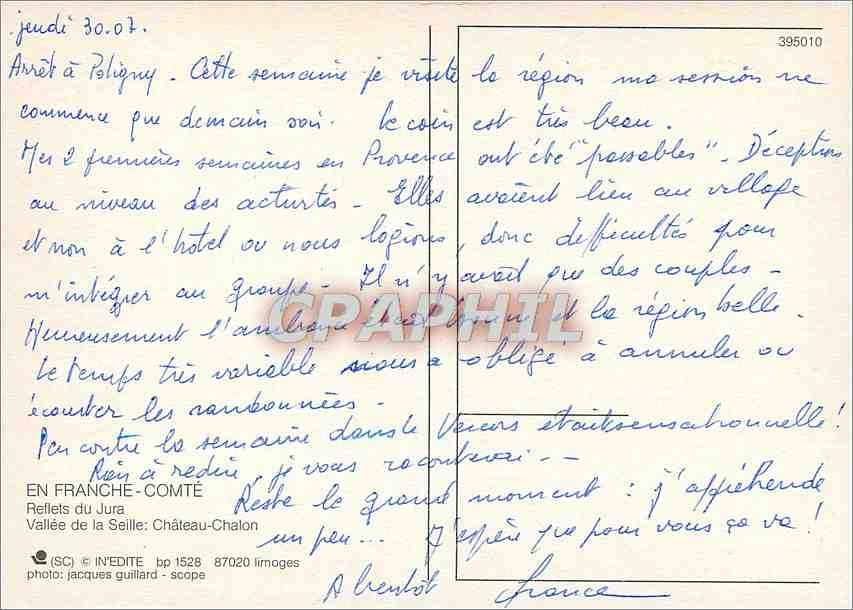 jeudi 30.07.
395010
Arrêt à Poligny - Cette semaine je visite la région ma session ne
commence que demain soir. Le coin est très beau.
Mes 2 premières semaines en Provence ont été "passables" - Déceptions
au niveau des activités - Elles avaient lieu au village
et non à l'hôtel ou nous logions, donc difficultés pour
m'intégrer au groupe - Il n'y avait que des couples -
Heureusement l'ambiance était bonne et la région belle.
Le temps très variable nous a obligé à annuler ou
écourter les randonnées -
Par contre la semaine dans le Vercors était sensationnelle!
Rien à redire, je vous raconterai - -
Reste le grand moment : j'appréhende
un peu... J'espère que pour vous ça va!
A bientôt France
CPAPHIL
EN FRANCHE-COMTÉ
Reflets du Jura
Vallée de la Seille: Château-Chalon
(SC) © IN'EDITE bp 1528 87020 limoges
photo: jacques guillard - scope